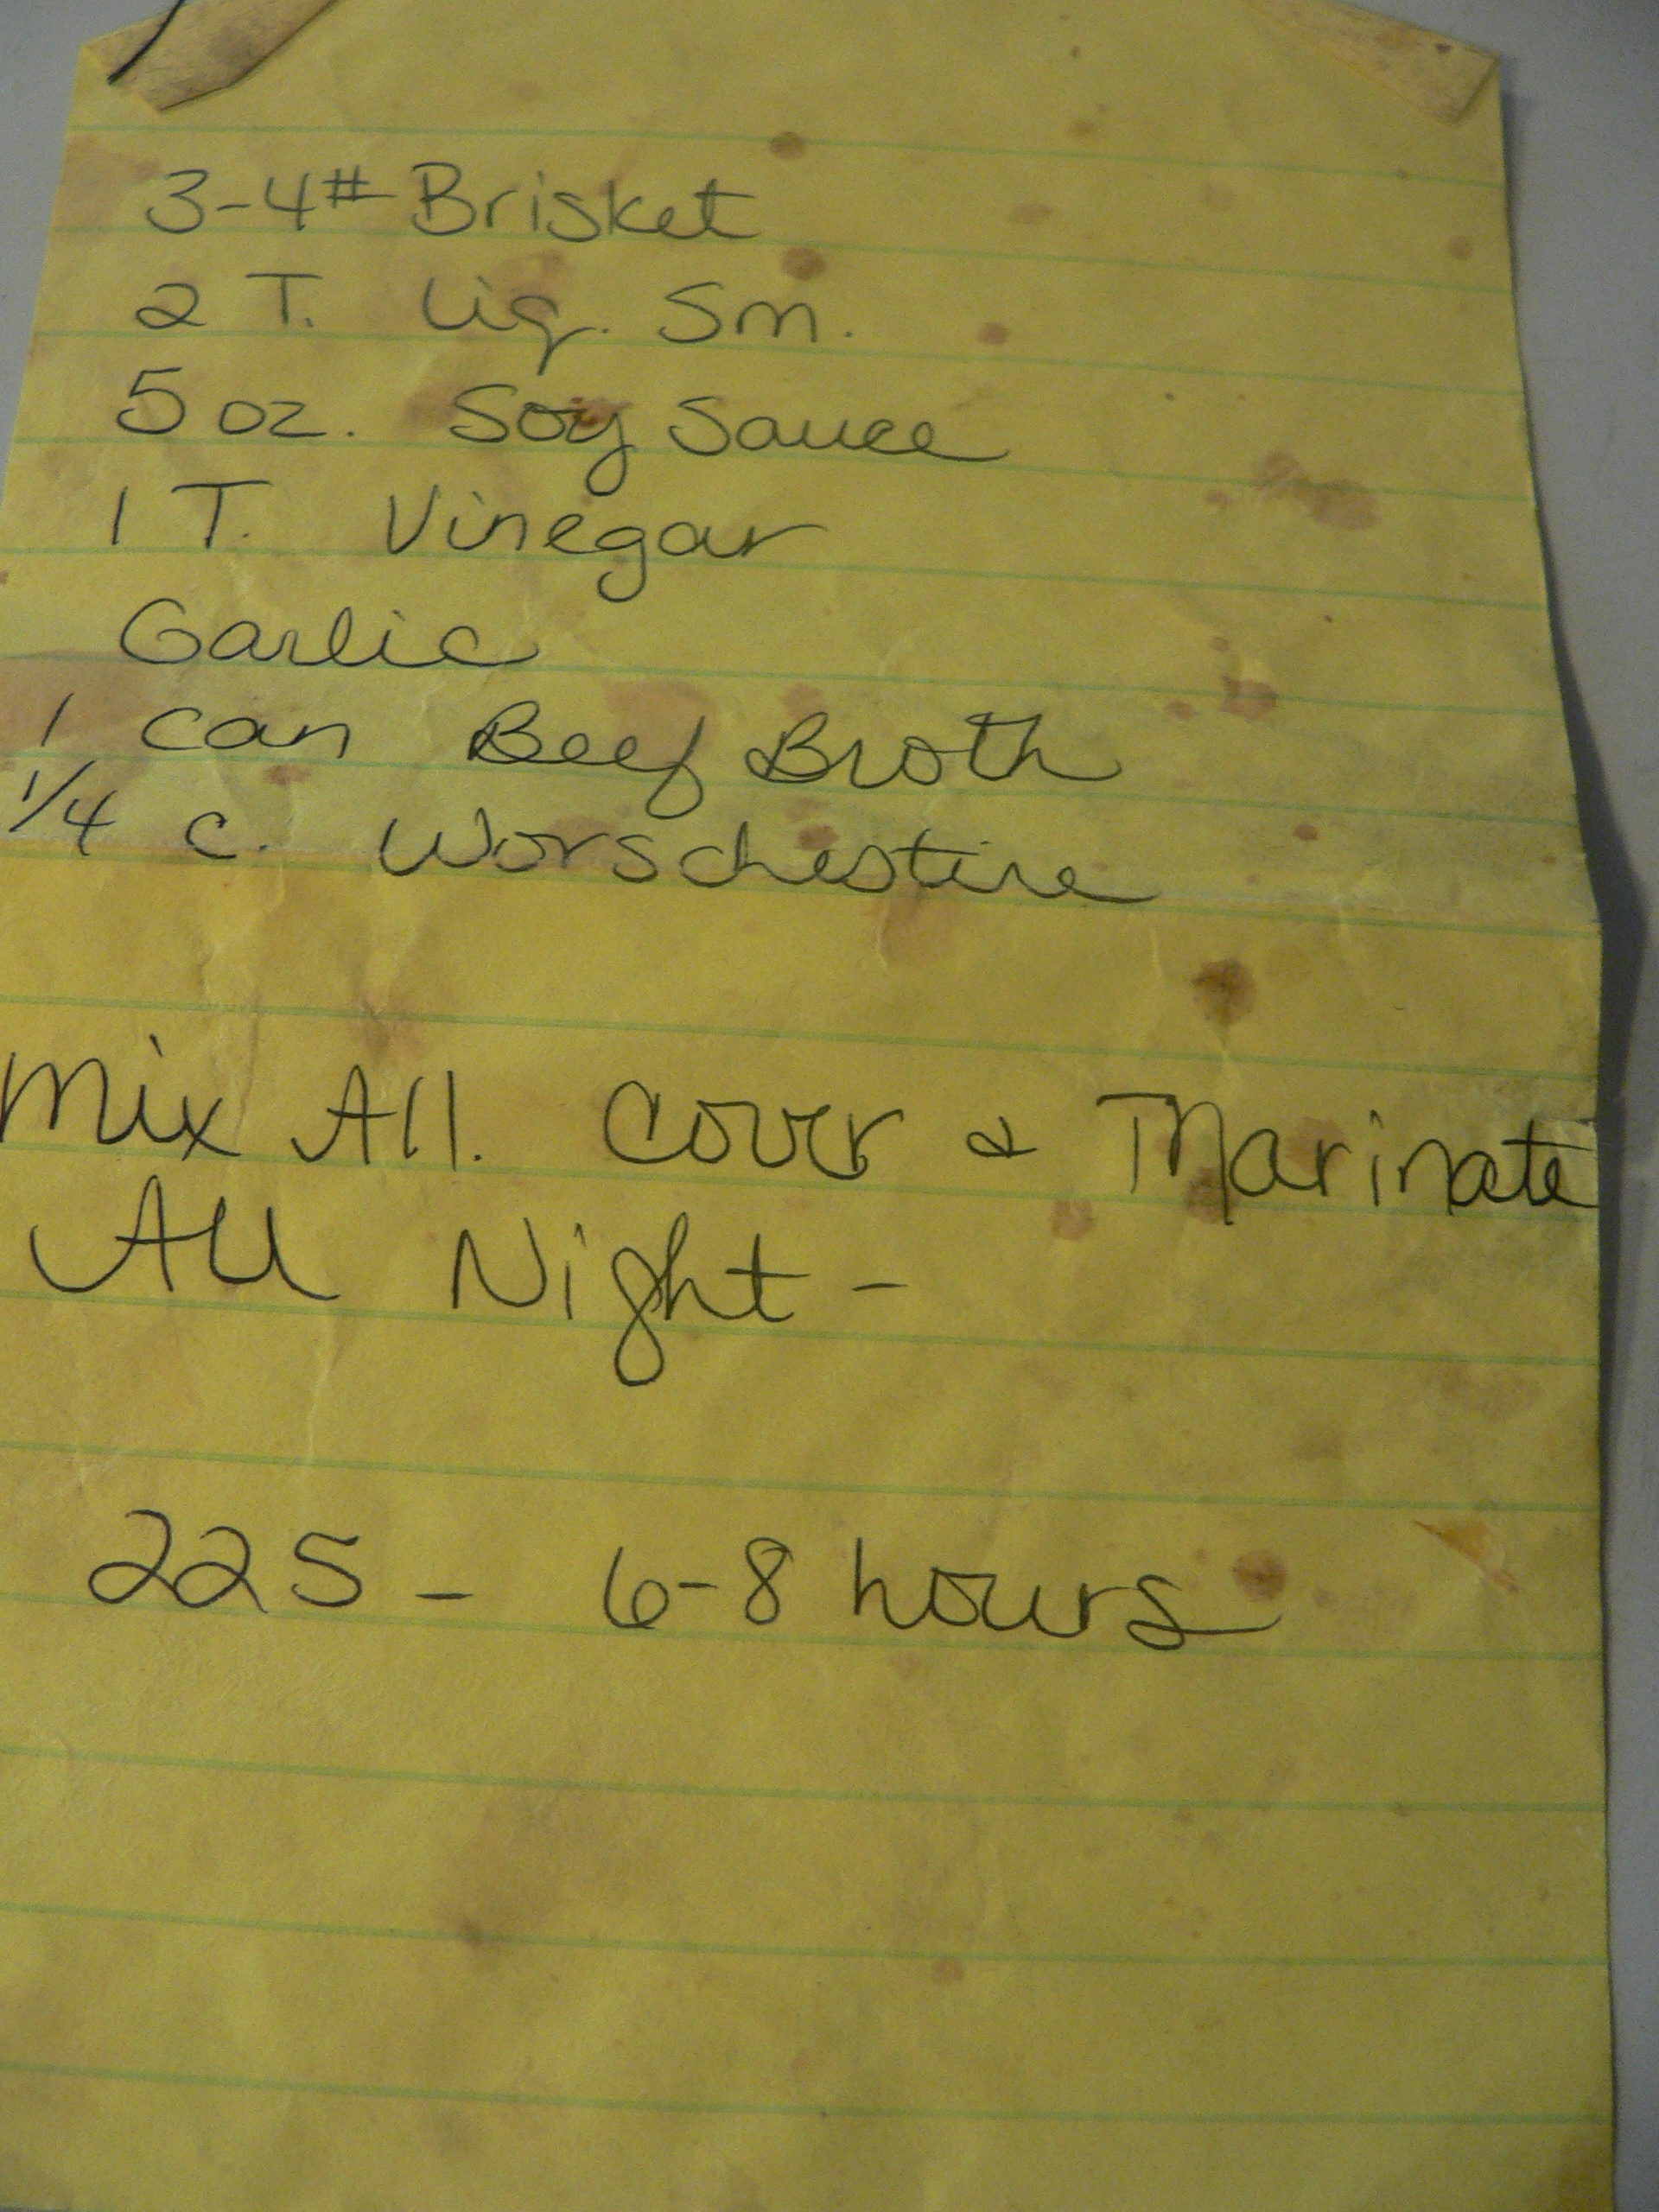 3-4# Brisket
2 T. Liq. Sm.
5 oz. Soy Sauce
1 T. Vinegar
Garlic
1 can Beef Broth
1/4 c. Worschestire
Mix All. Cover & Marinate
All Night -
225 - 6-8 hours